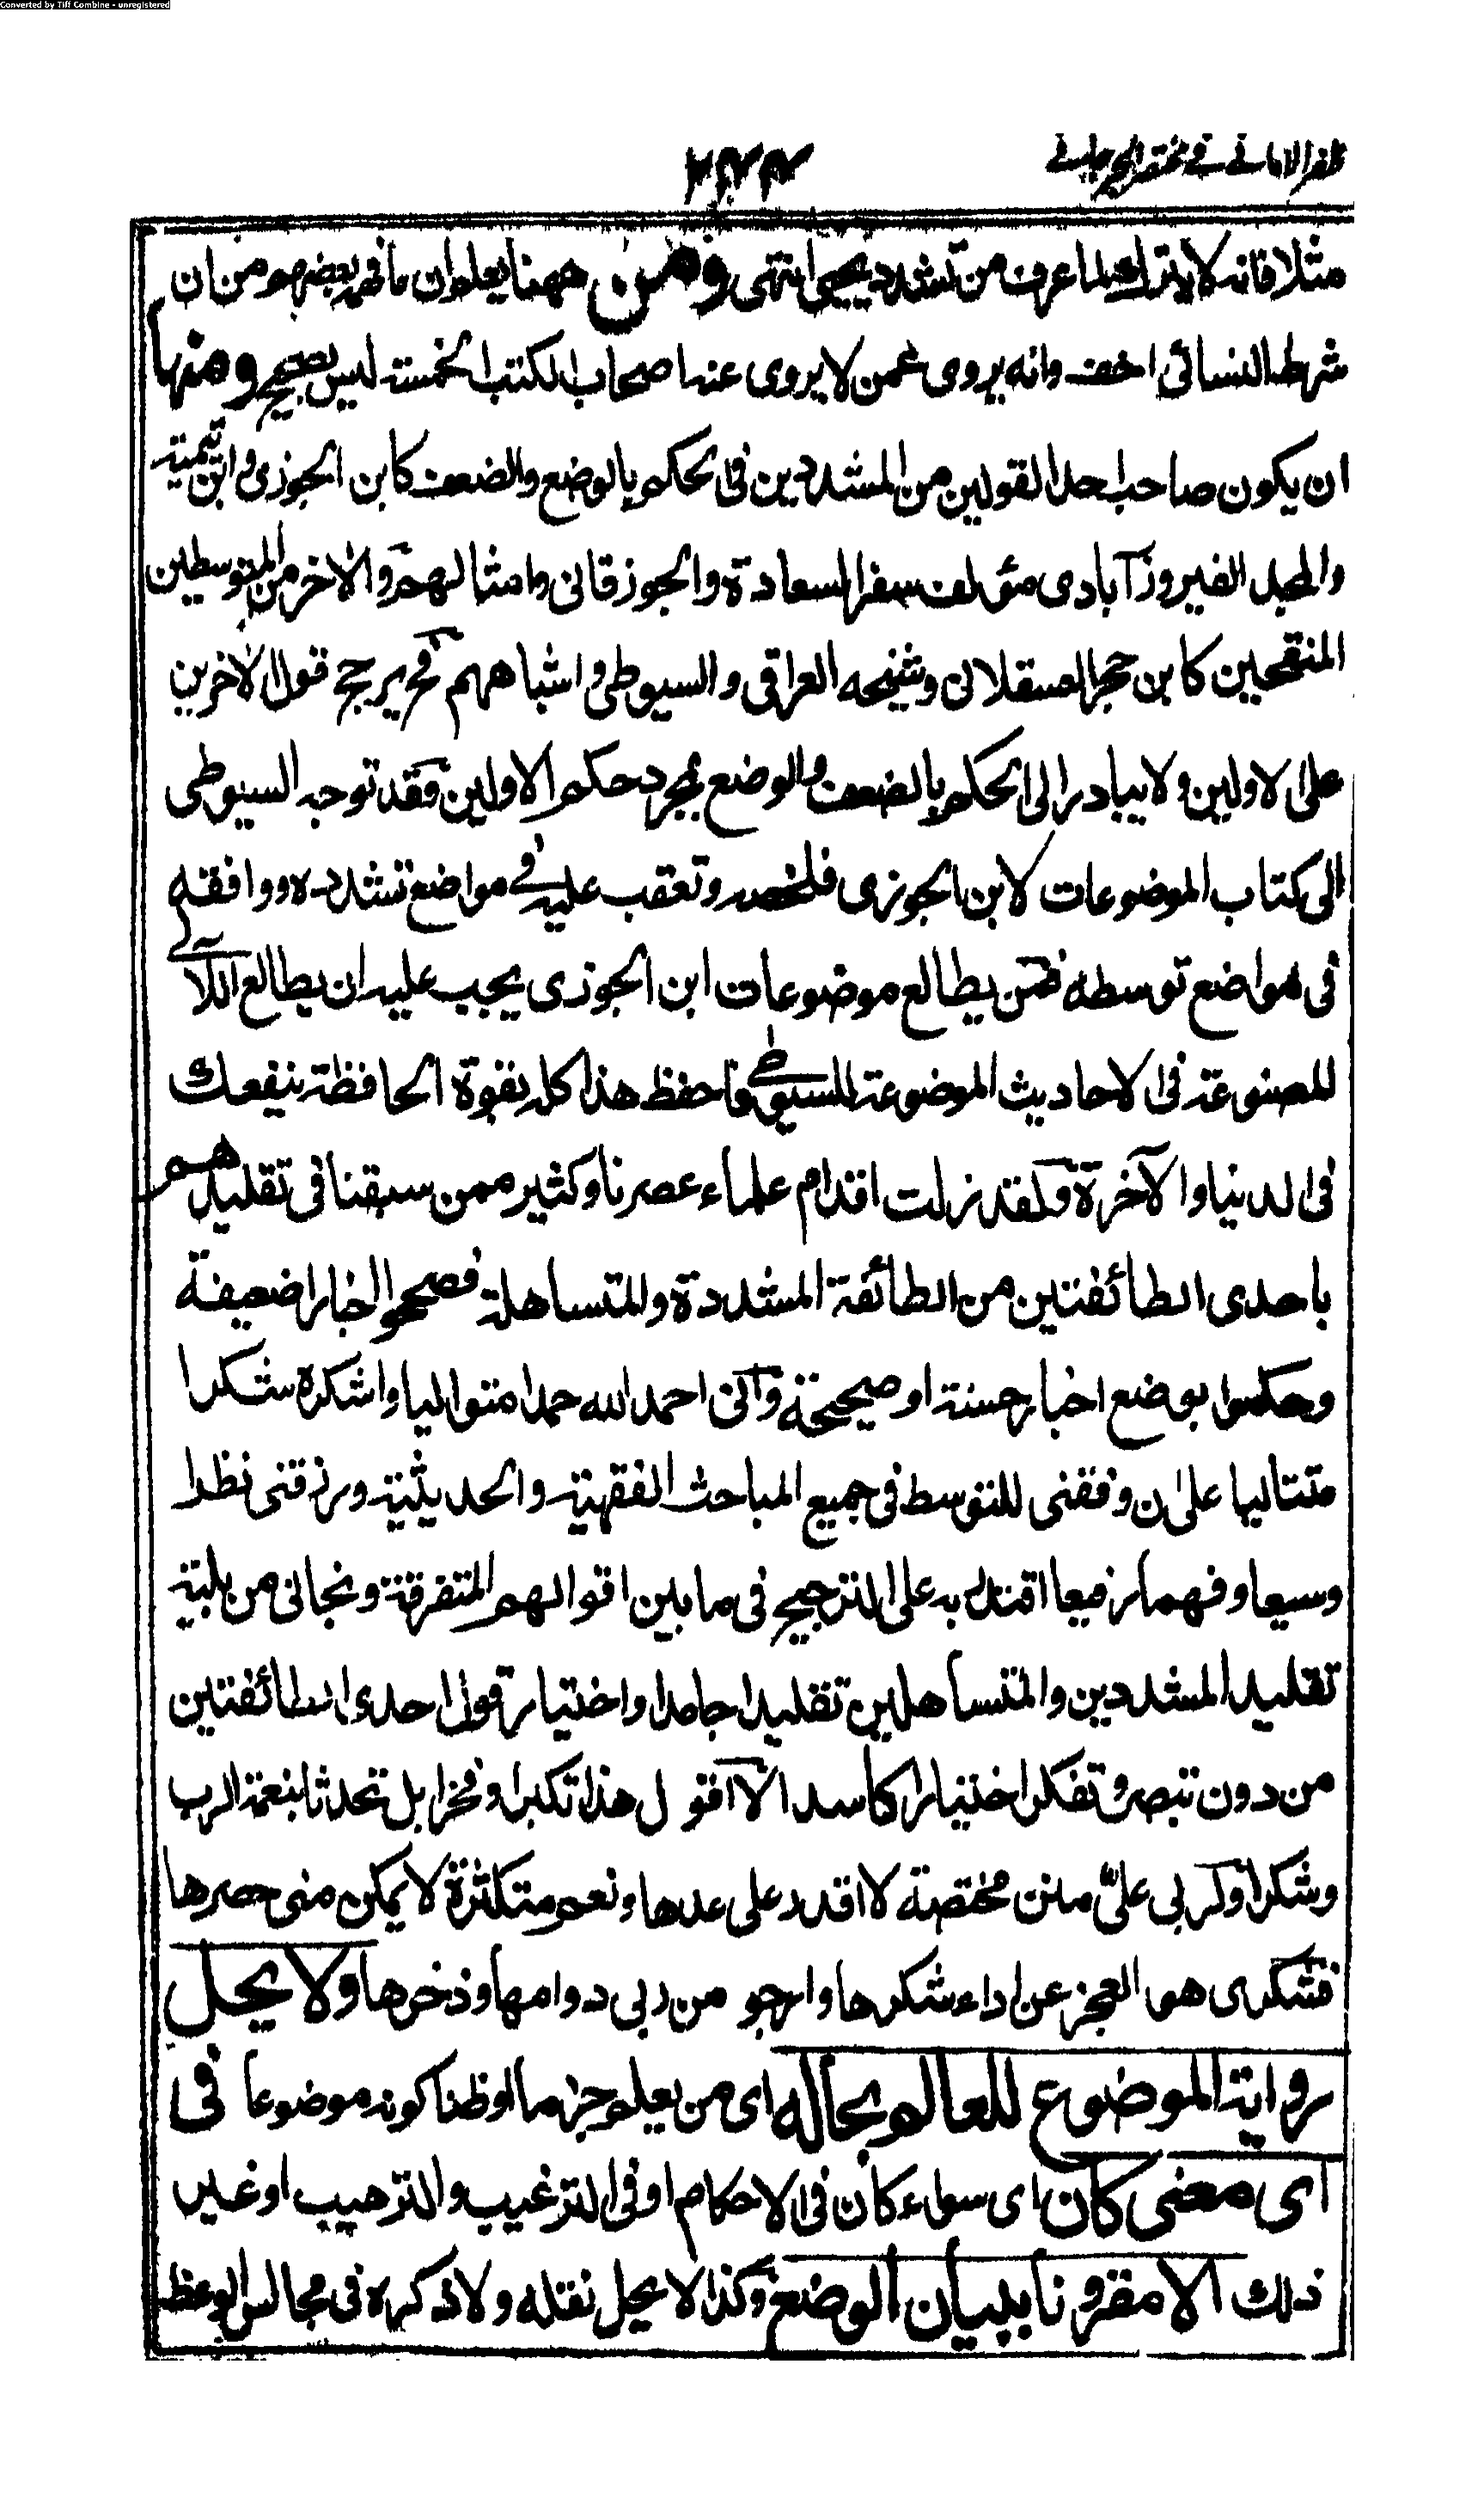 Converted by Tiff Combine - unregistered
ظفر الامانی فی مختصر الجرجانی
۲۴۲
مثلا فانه لا يترك لما عرف من تشدد يحيى انتهى ومن ههنا يعلم ان ما فهم بعضهم من ان
شرط النسائى اخف وانه يروى عمن لا يروى عنه اصحاب الكتب الخمسة ليس بصحيح ومنها
ان يكون صاحب احد القولين من المشددين فى الحكم بالوضع والضعف كابن الجوزى وابن تيمية
والمجد الفيروزآبادى مؤلف سفر السعادة والجوزقانى وامثالهم والآخر من المتوسطين
المنقحين كابن حجر العسقلانى وشيخه العراقى والسيوطى واشباههم فح يرجح قول الآخرين
على الاولين ولا يبادر الى الحكم بالضعف والوضع بمجرد حكم الاولين فقد توجه السيوطى
الى كتاب الموضوعات لابن الجوزى فلخصه وتعقب عليه فى مواضع تشدده ووافقه
فى مواضع توسطه فمن يطالع موضوعات ابن الجوزى يجب عليه ان يطالع اللآلى
المصنوعة فى الاحاديث الموضوعة للسيوطى فاحفظ هذا كله بقوة الحافظة ينفعك
فى الدنيا والآخرة ولقد زلت اقدام علماء عصرنا وكثير ممن سبقنا فى تقليدهم
باحدى الطائفتين من الطائفة المشددة والمتساهلة فصححوا اخبارا ضعيفة
وحكموا بوضع اخبار حسنة او صحيحة وانى احمد الله حمدا متواليا واشكره شكرا
متتاليا على ان وفقنى للتوسط فى جميع المباحث الفقهية والحديثية ورزقنى نظرا
وسيعا وفهما رفيعا اقتدر به على الترجيح فى ما بين اقوالهم المتفرقة ونجانى من بلية
تقليد المشددين والمتساهلين تقليدا جامدا واختيار قول احدى الطائفتين
من دون تبصر وتفكر اختيارا كاسدا لا اقول هذا تكبرا وفخرا بل تحدثا بنعمة الرب
وشكرا وكم لربى علىّ منن مختصة لا اقدر على عدها ونعم متكثرة لا يمكن منى حصرها
فشكرى هو العجز عن اداء شكرها وارجو من ربى دوامها وذخرها ولا يحل
رواية الموضوع للعالم بحاله اى من يعلم جزما او ظنا كونه موضوعا فى
اى معنى كان اى سواء كان فى الاحكام او فى الترغيب والترهيب او غير
ذلك الا مقرونا ببيان الوضع وكذا لا يحل نقله ولا ذكره فى مجالس الوعظ